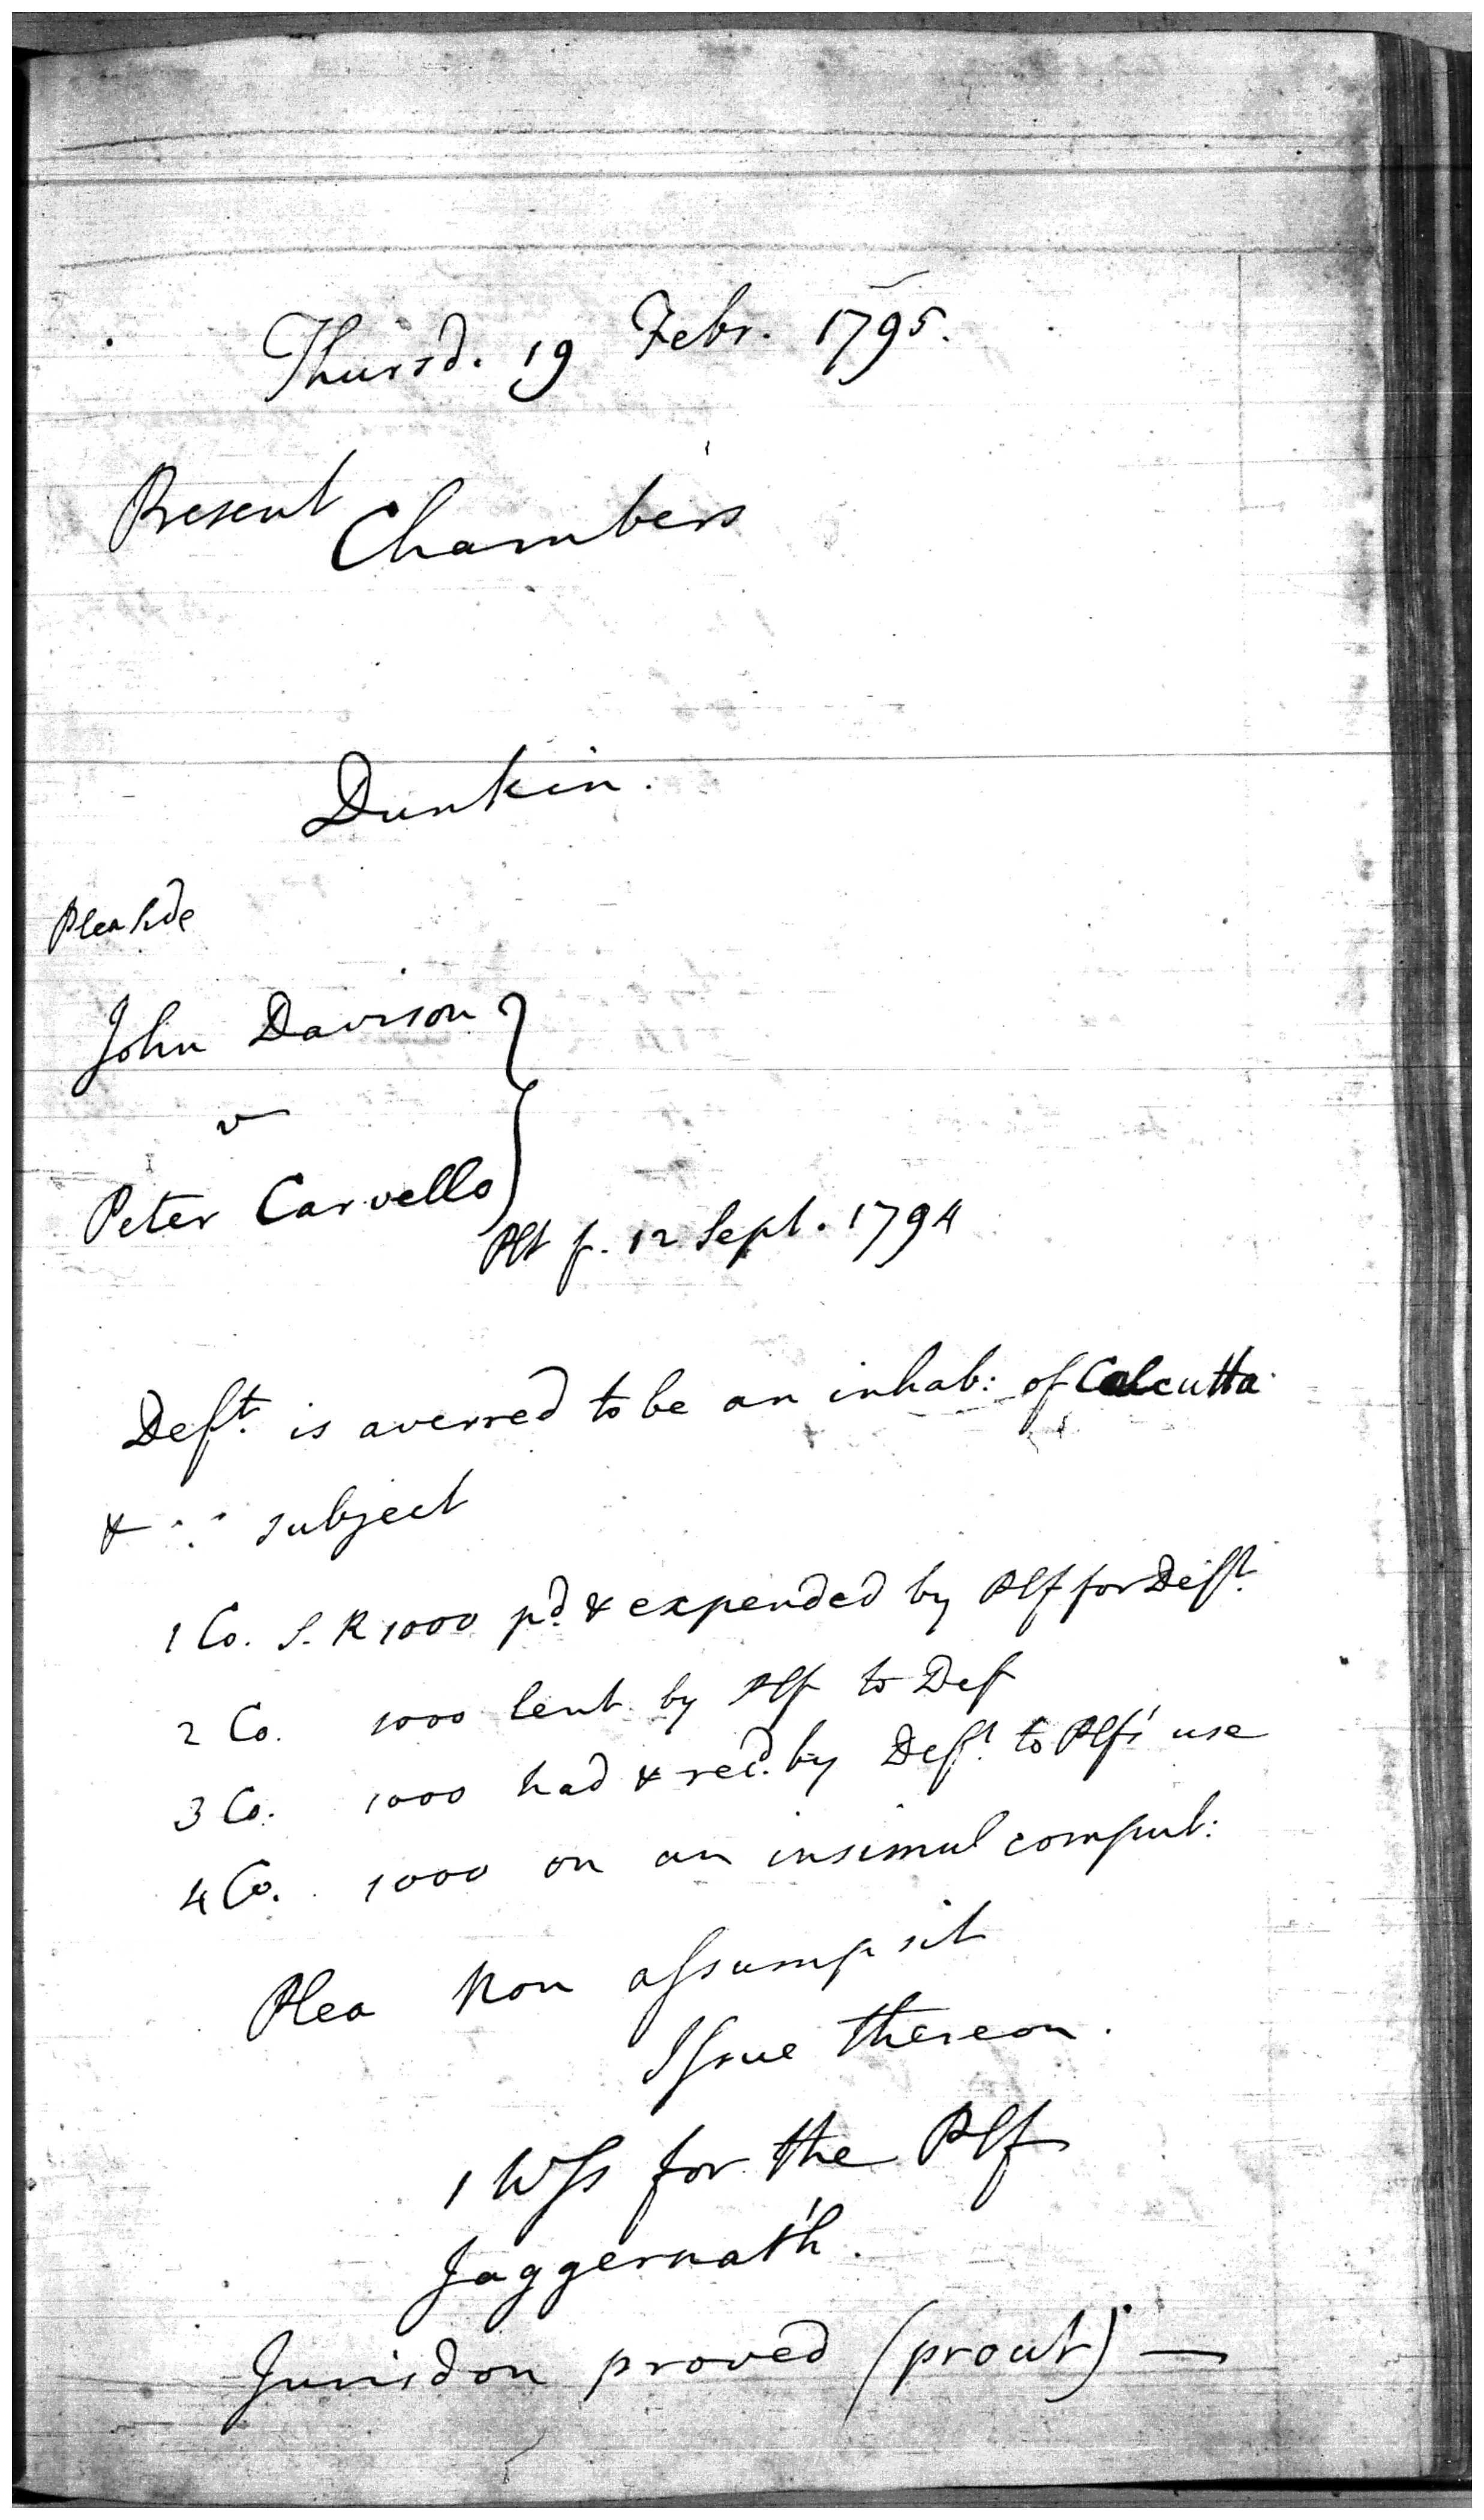 Thursd. 19 Febr. 1795.
Present
Chambers
Dunkin.
Plea Side
John Davison
v
Peter Carvello
Plt f. 12 Sept. 1794
Deft. is averred to be an inhab: of Calcutta
& ∵ subject
1 Co. S. R 1000 pd. & expended by Plf for Deft.
2 Co. 1000 lent by Plf to Def
3 Co. 1000 had & recd. by Deft. to Plfs' use
4 Co. 1000 on an insimul comput:
Plea Non assumpsit
Issue thereon.
1 Wss for the Plf
Jaggernath.
Jurisdon proved (prout) —